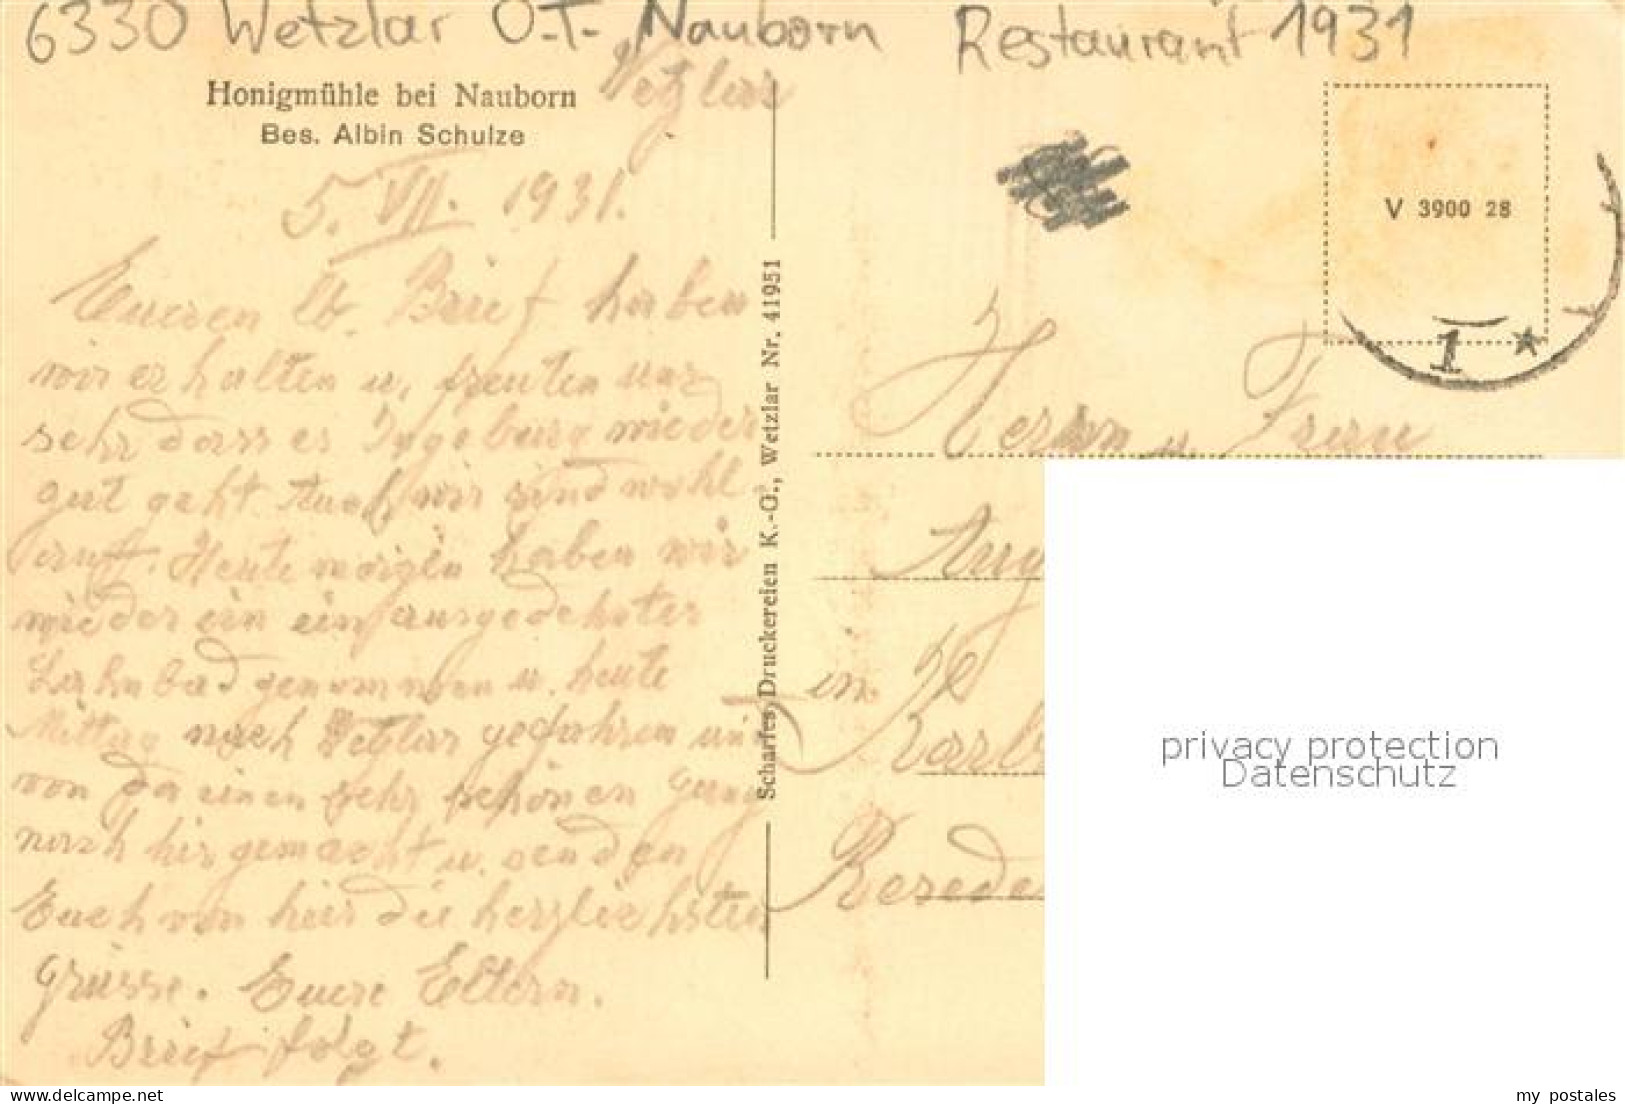 6330 Wetzlar O.-T.- Nauborn Restaurant 1931
Honigmühle bei Nauborn
Bes. Albin Schulze
Wetzlar
5. VII. 1931.
Eueren lb. Brief haben
wir erhalten u. freuten uns
sehr dass es Ingeburg wieder
gut geht. Auch wir sind wohl
auf. Heute morgen haben wir
wieder ein ein ausgedehntes
Lahnbad genommen u. heute
Mittag nach Wetzlar gefahren und
von da einen sehr schönen Gang
nach hier gemacht u. senden
Euch von hier die herzlichsten
Grüsse. Euere Eltern.
Brief folgt.
Scharfes Druckereien K.-G., Wetzlar Nr. 41951
V 3900 28
1 *
Herrn u. Frau
Aug
in
Karls
Resede
privacy protection
Datenschutz
www.delcampe.net
my_postales